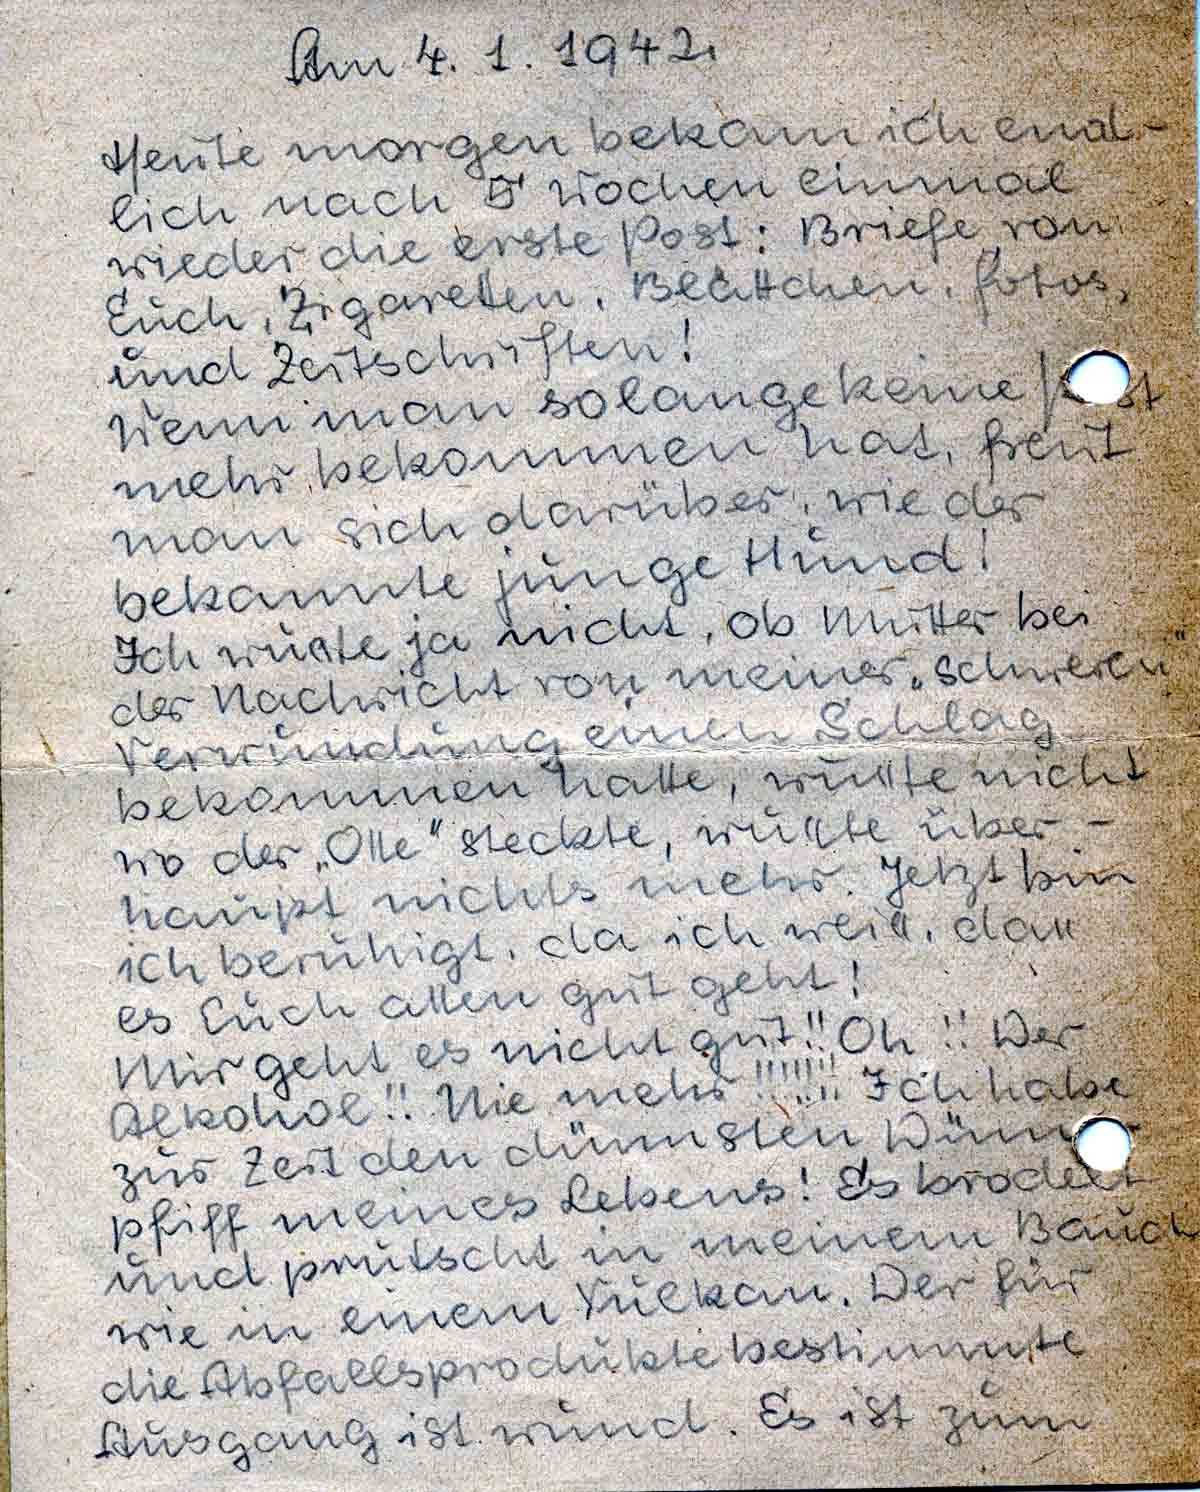 Am 4. 1. 1942.
Heute morgen bekam ich end-
lich nach 5 Wochen einmal
wieder die erste Post: Briefe von
Euch, Zigaretten, Blättchen, Fotos,
und Zeitschriften!
Wenn man solange keine Post
mehr bekommen hat, freut
man sich darüber, wie der
bekannte junge Hund!
Ich wußte ja nicht, ob Mutter bei
der Nachricht von meiner „schweren"
Verwundung einen Schlag
bekommen hatte, wußte nicht
wo der „Olle" steckte, wußte über-
haupt nichts mehr. Jetzt bin
ich beruhigt, da ich weiß, daß
es Euch allen gut geht!
Mir geht es nicht gut!! Oh!! Der
Alkohol!! Nie mehr!!!!!!! Ich habe
zur Zeit den dünnsten Dünn-
pfiff meines Lebens! Es brodelt
und prutscht in meinem Bauch
wie in einem Vulkan. Der für
die Abfallsprodukte bestimmte
Ausgang ist wund. Es ist zum